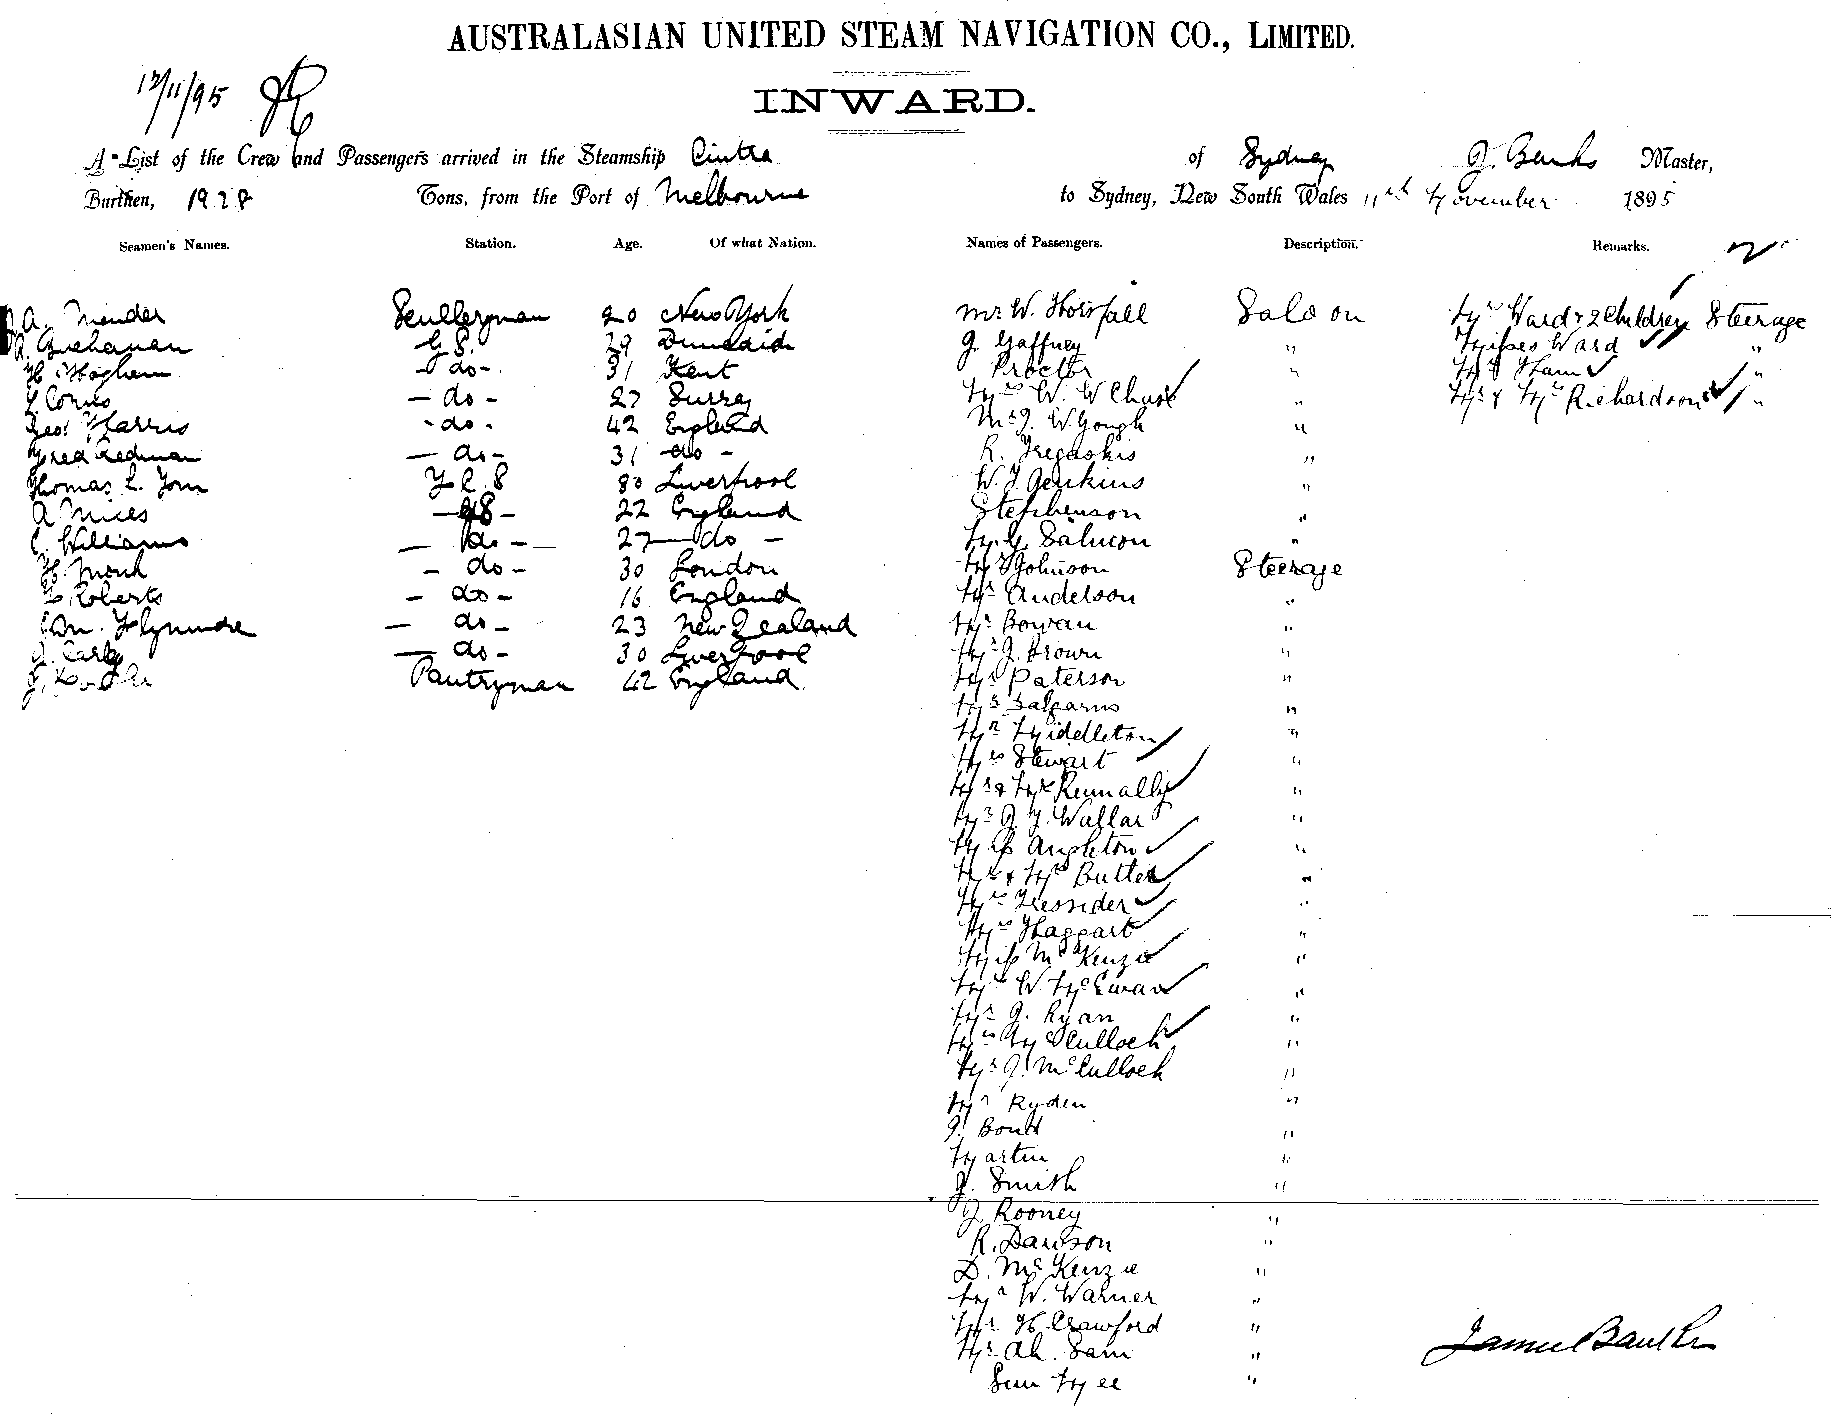 AUSTRALASIAN UNITED STEAM NAVIGATION CO., LIMITED.
12/11/95
INWARD.
A List of the Crew and Passengers arrived in the Steamship Cintra of Sydney J. Banks Master,
Burthen, 1928 Tons, from the Port of Melbourne to Sydney, New South Wales 11th November 1895
Seamen's Names. Station. Age. Of what Nation. Names of Passengers. Description. Remarks.
A. Sculleryman 20 New York
Buchanan 29 Dunedin
H. - do - 31 Kent
- do - 27 Surrey
Geo. Harris - do - 42 England
Fred Redman - do - 31 - do -
Thomas L. F C S 30 Liverpool
A 22 England
Williams - do - 27 - do -
H. Monk - do - 30 London
Roberts - do - 16 England
- do - 23 New Zealand
- do - 30 Liverpool
J. Pantryman 42 England
Mr W. Horsfall Saloon
J. Gaffney "
Proctor "
Mrs W. W "
Mr J. W Gough "
R. Tregaskis "
W. J Jenkins "
Stephenson "
Mr G. Salmon "
Mr Johnson Steerage
Mr Anderson "
Mr Bowan "
Mr J. Brown "
Mr Paterson "
Mr "
Mr Middleton "
Mrs Stewart "
Mr & Mrs "
Mr J. "
Miss Angleton "
Mr & Mrs Butler "
Mrs Tressider "
Mrs Haggart "
Miss McKenzie "
Mrs W. McEwan "
Mr J. Ryan "
Mrs McCulloch "
Mr J. McCulloch "
Mr Ryden "
J. Bond "
Martin "
J. Smith "
J Rooney "
R. Dawson "
D. McKenzie "
Mr W. Warner "
Mr H. Crawford "
Mr Ah. Sam "
Sun Mee "
Mrs Ward & 2 Children Steerage
Misses Ward "
Mrs "
Mr & Mrs Richardson "
James Banks